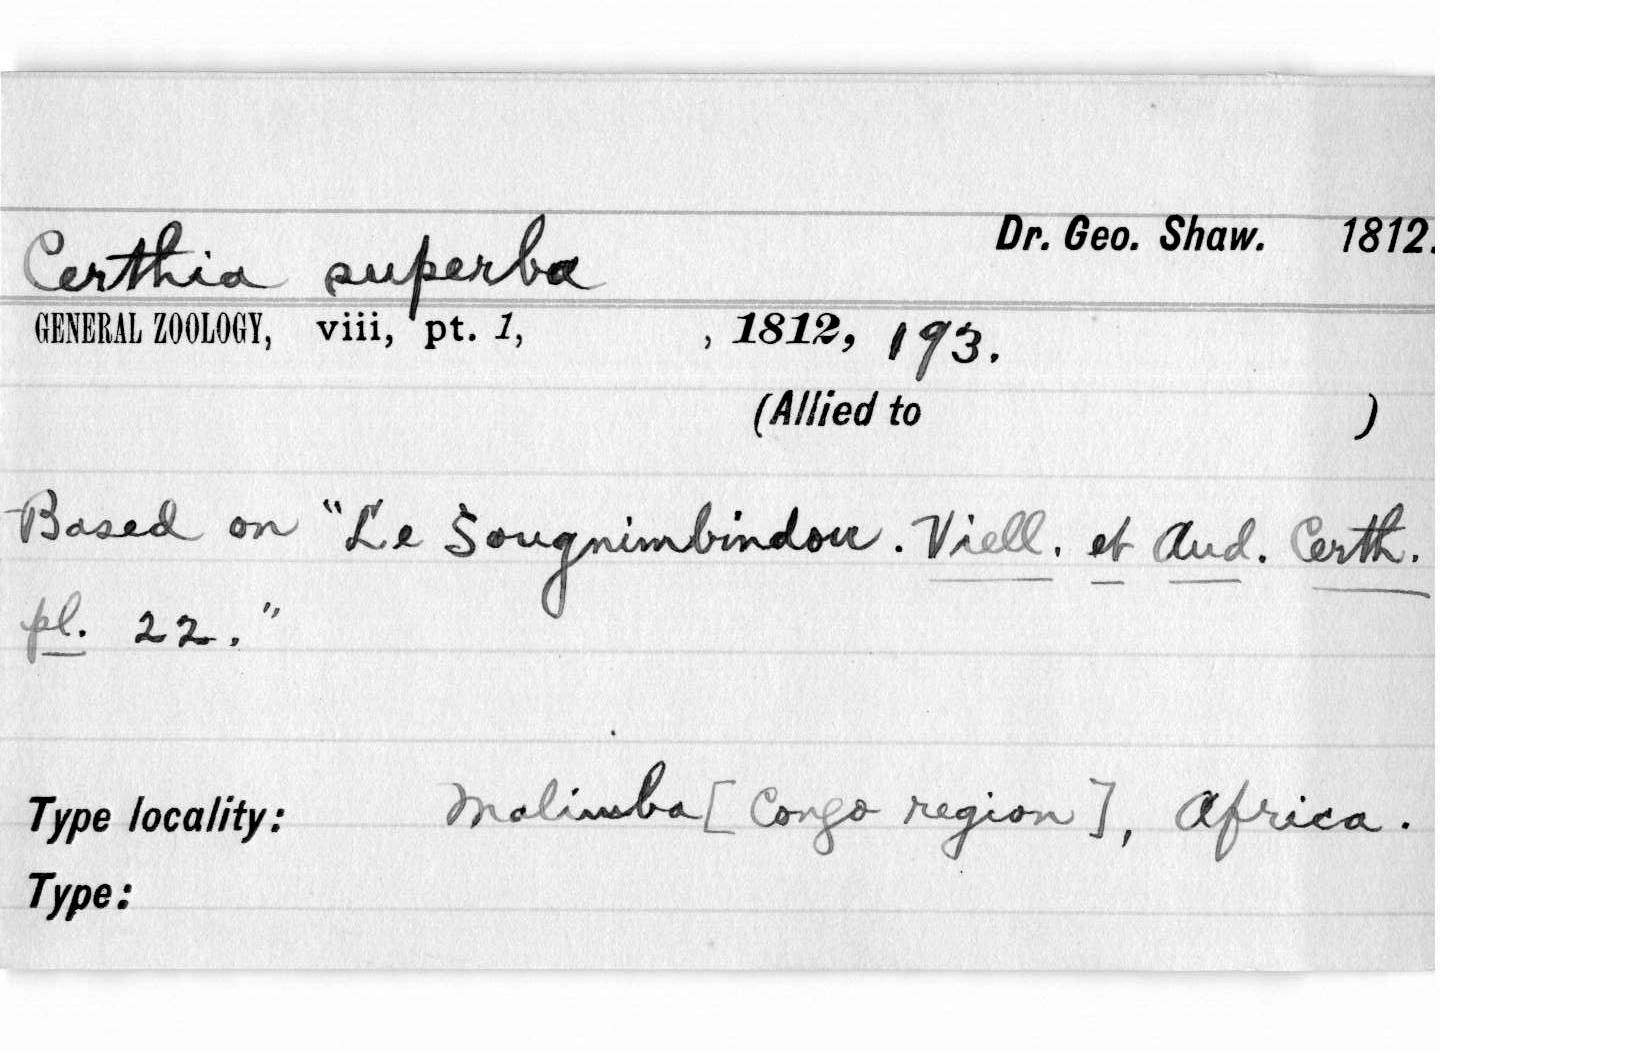 Certhia superba Dr. Geo. Shaw. 1812.
GENERAL ZOOLOGY, viii, pt. 1, , 1812, 193.
(Allied to )
Based on "Le Sougnimbindou. Viell. et Aud. Certh.
pl. 22."
Type locality: Malimba [Congo region], Africa.
Type: